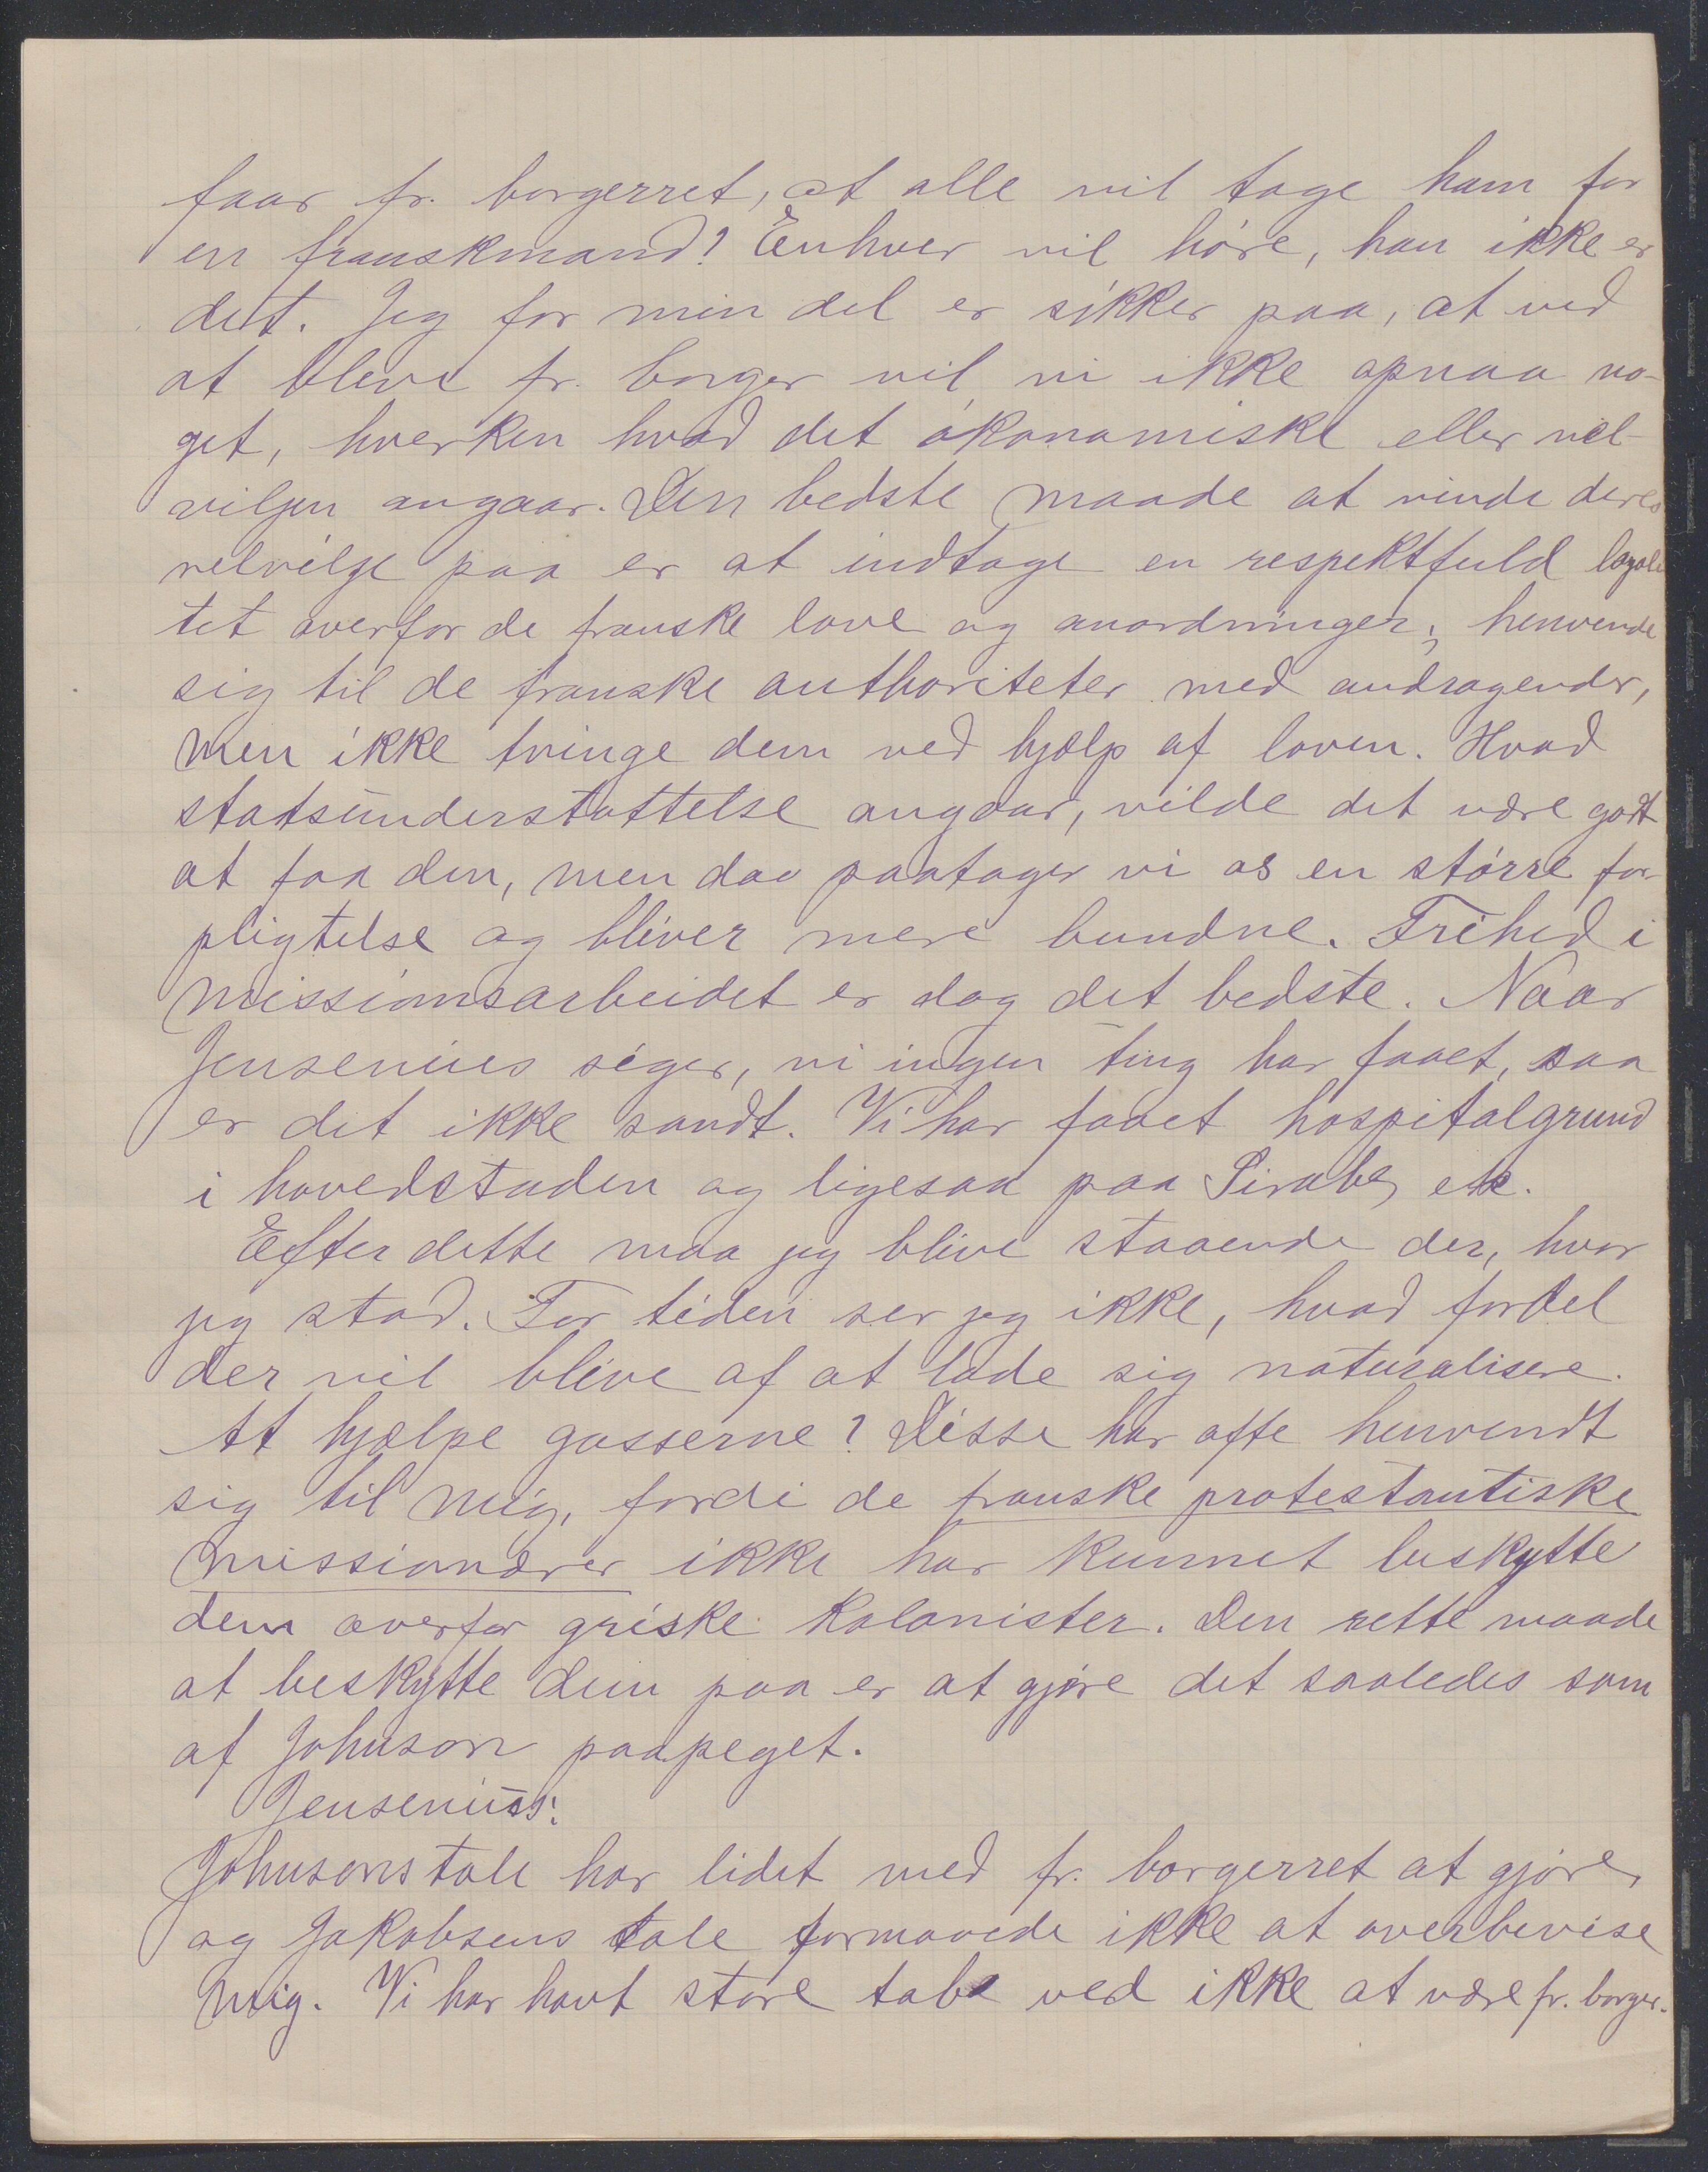 faar fr. borgerret, at alle vil tage ham for
en franskmand! Enhver vil høre, han ikke er
det. Jeg for min del er sikker paa, at ved
at bleve fr. borger vil vi ikke opnaa no-
get, hverken hvad det økonomiske eller vel-
viljen angaar. Den bedste maade at vinde deres
velvilje paa er at indtage en respektfuld loyali
tet overfor de franske love og anordninger; henvende
sig til de franske authoriteter med andragender,
men ikke tvinge dem ved hjælp af loven. Hvad
statsunderstøttelse angaar, vilde det være godt
at faa den, men da paatager vi os en større for-
pligtelse og bliver mere bundne. Frihed i
missionsarbeidet er dog det bedste. Naar
Jensenius siger, vi ingen ting har faaet, saa
er det ikke sandt. Vi har faaet hospitalgrund
i hovedstaden og ligesaa paa Sirabe, etc.
Efter dette maa jeg blive staaende der, hvor
jeg stod. For tiden ser jeg ikke, hvad fordel
der vil blive af at lade sig naturalisere.
At hjælpe gasserne? Disse har ofte henvendt
sig til mig, fordi de franske protestantiske
missionærer ikke har kunnet beskytte
dem overfor griske kolonister. Den rette maade
at beskytte dem paa er at gjøre det saaledes som
af Johnson paapeget.
Jensenius:
Johnsons tale har lidet med fr. borgerret at gjøre,
og Jakobsens tale formaaede ikke at overbevise
mig. Vi har havt store tab ved ikke at være fr. borger.